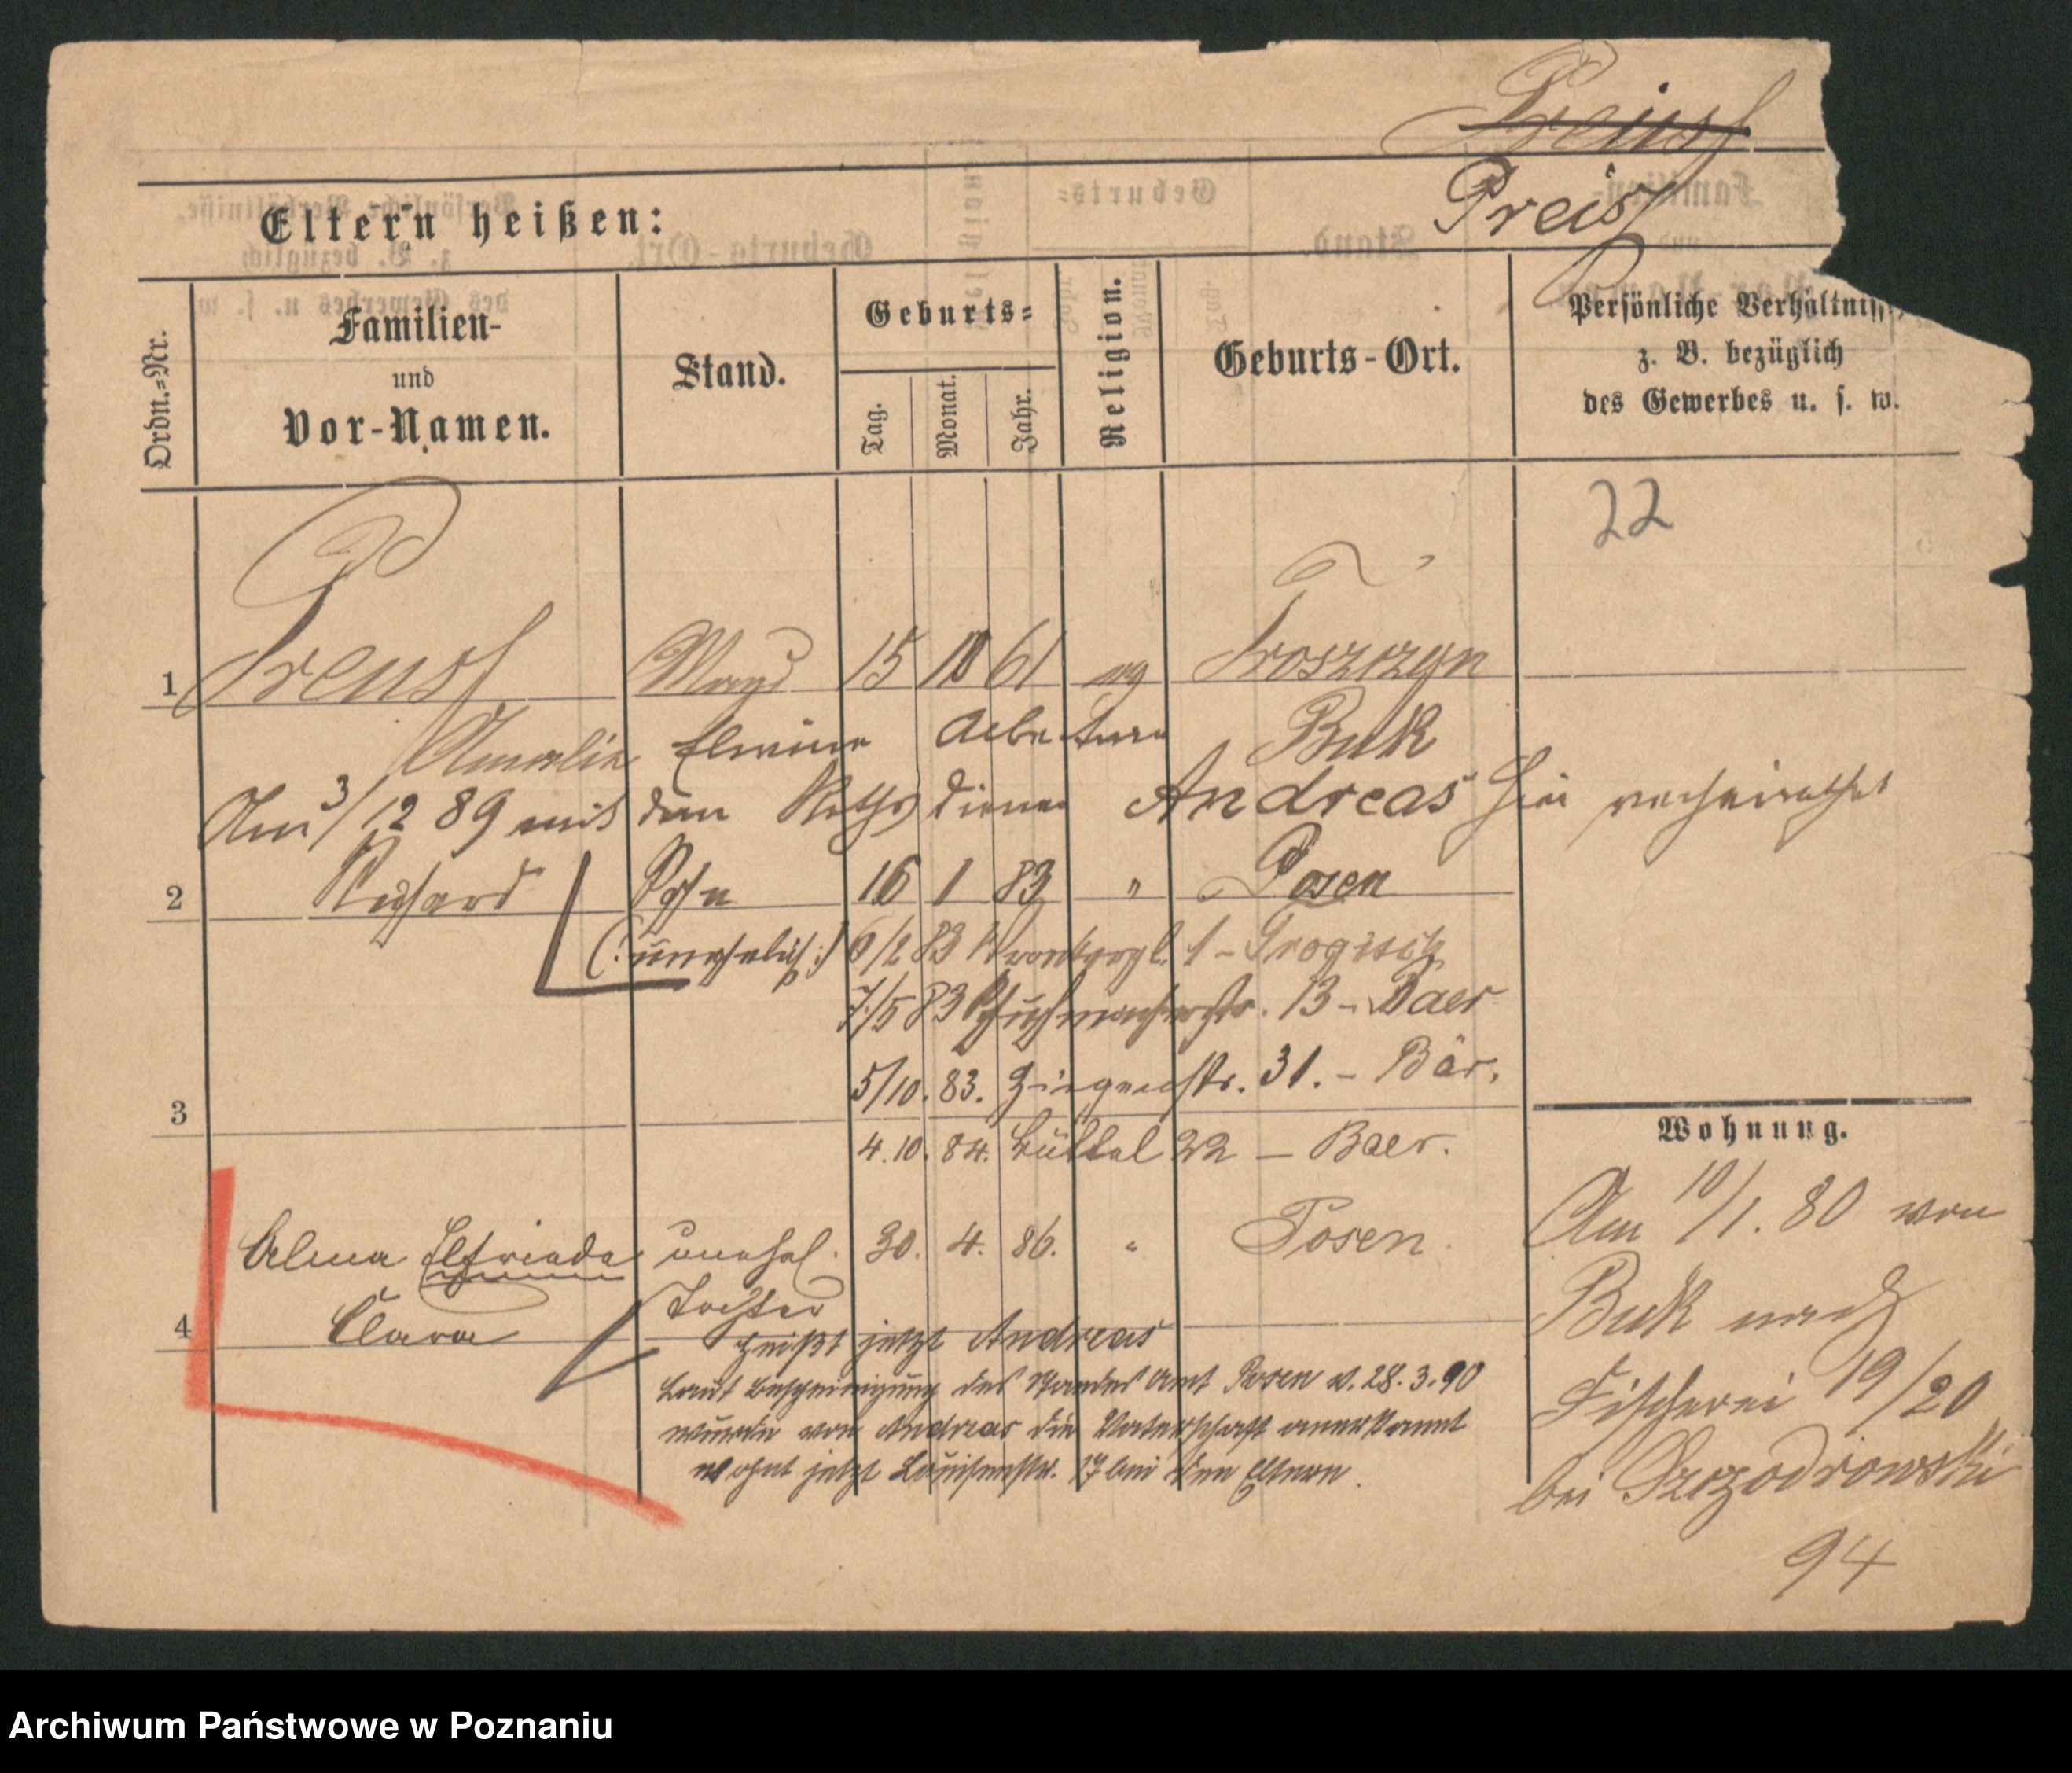 Preuss
Preiss
Eltern heißen:
Ordn.=Nr.
Familien-
und
Vor-Namen.
Stand.
Geburts=
Tag.
Monat.
Jahr.
Religion.
Geburts-Ort.
Persönliche Verhältniss
z. B. bezüglich
des Gewerbes u. s. w.
22
1 Preuss Magd 15 10 61 ev Troszczyn
Amalie Elwine Albertine Buk
Am 3/12 89 mit dem Raths diener Andreas hier verheirathet
2 Richard Sohn 16 1 83 " Posen
(: unehelich :) 6/2 83 1 -
7/5 83 Schuhmacherstr. 13 - Baer
5/10. 83. Ziegenstr. 31. - Bär.
3
4. 10. 84. Büttel 22 - Baer.
Wohnung.
Am 10/1. 80 von
Buk nach
Fischerei 19/20
bei Szczodrowski
94
Alma Elfriede unehel. 30. 4. 86. " Posen.
Tochter
4 Clara
heißt jetzt Andreas
Laut Bescheinigung des Standes Amt Posen v. 28. 3. 90
wurde von Andreas die Vaterschaft anerkannt
wohnt jetzt Louisenstr. 17 bei den Eltern.
Archiwum Państwowe w Poznaniu